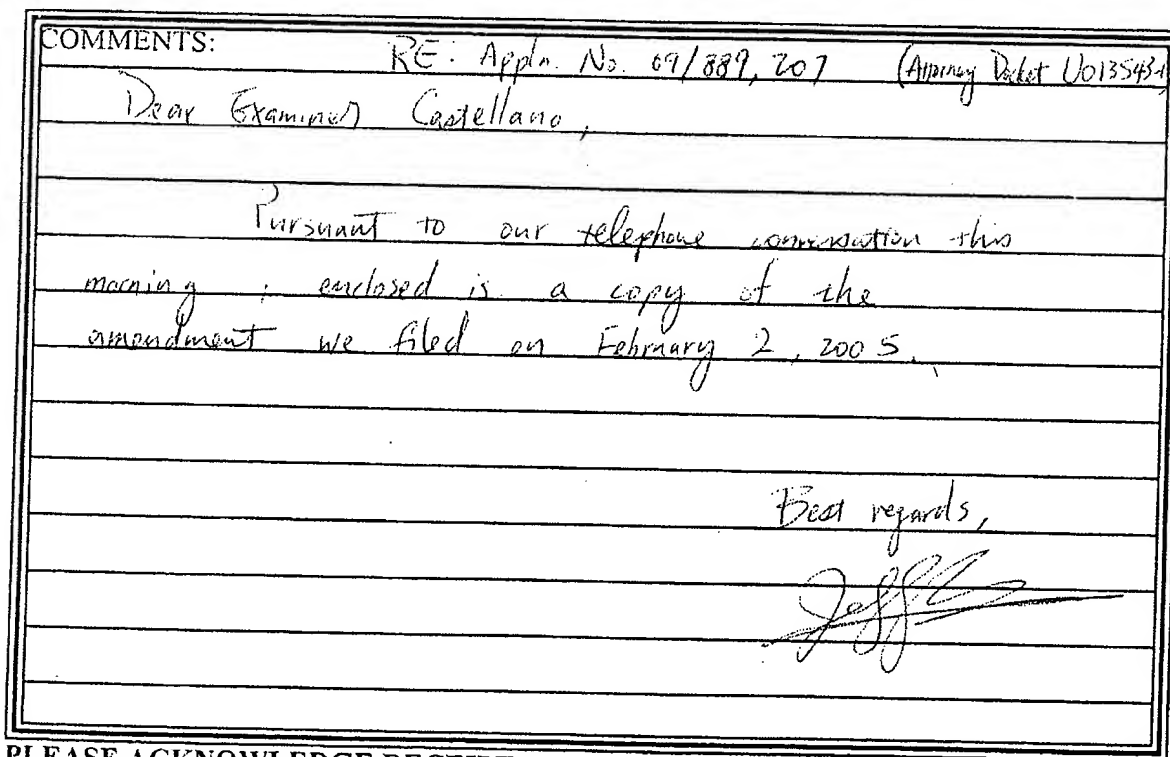 COMMENTS: RE: Appln. No. 09/889,207 (Attorney Docket U013543-
Dear Examiner Castellano,
Pursuant to our telephone conversation this
morning, enclosed is a copy of the
amendment we filed on February 2, 2005.
Best regards,
Jeff
PLEASE ACKNOWLEDGE RECEIPT